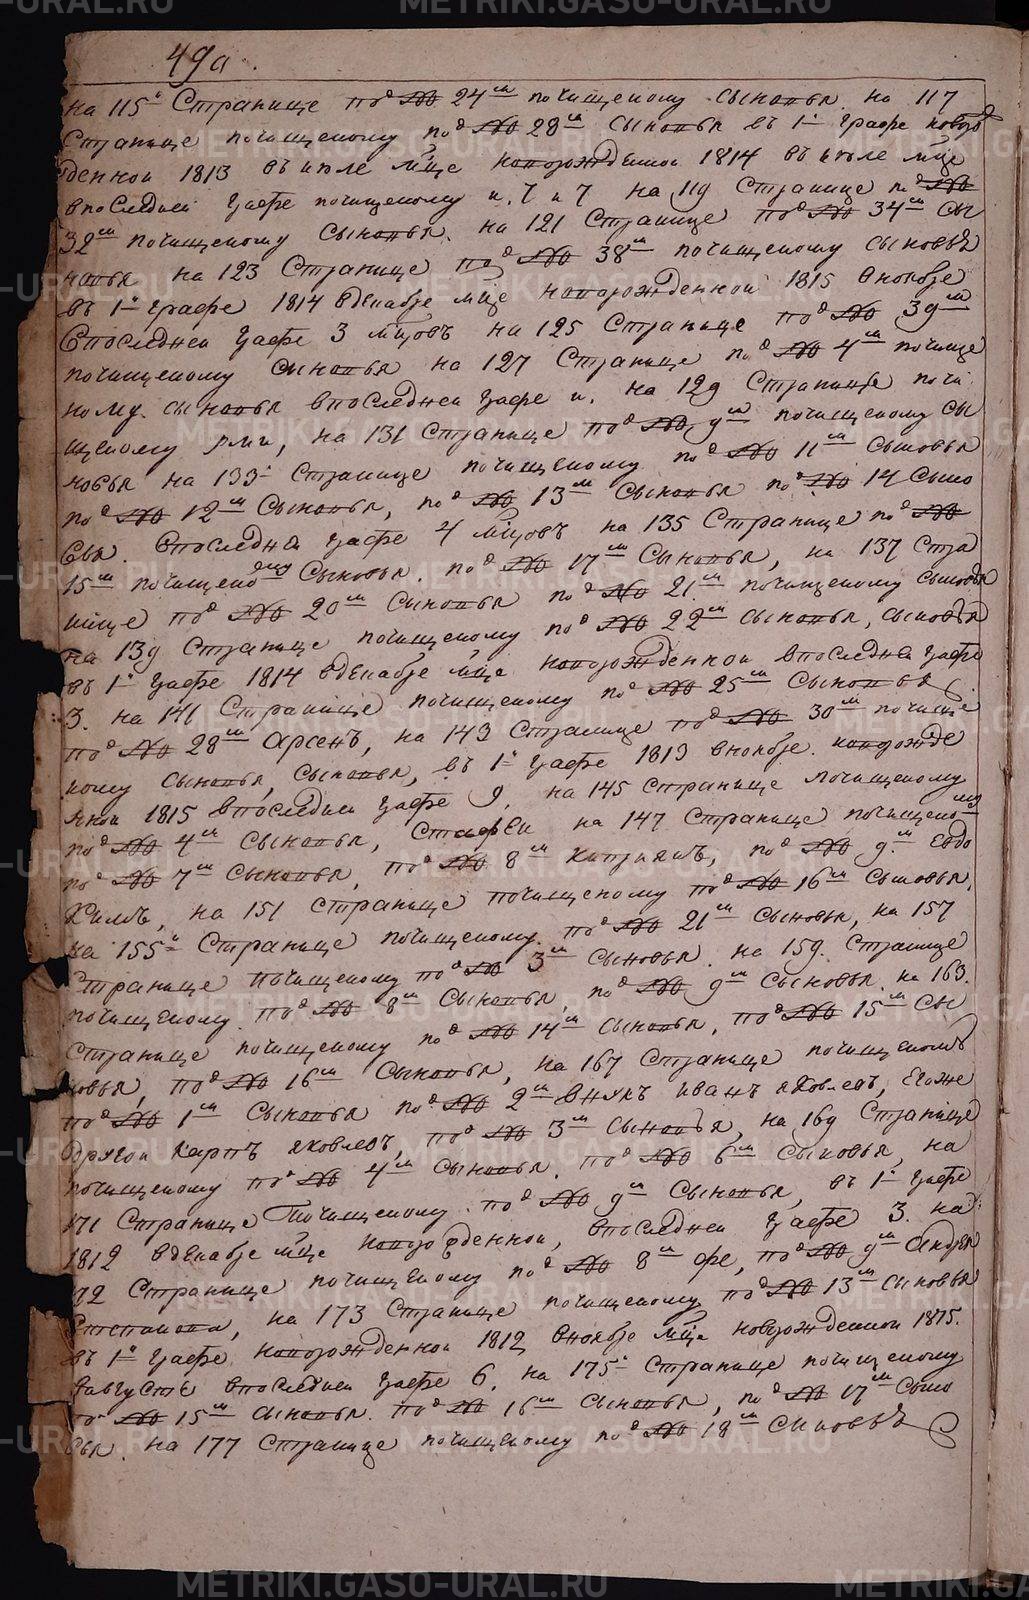 49а.
на 115й Странице подъ № 24м почищеному сыновья. на 117
Странице почищеному подъ № 28м сыновья въ 1й графе новорож
денной 1813 въ июле мце новорожденной 1814 въ июле мце
впоследней графе почищеному и. 7 и 7 на 119 Странице подъ №
32м почищеному сыновья. на 121 Странице подъ № 34м сы
новья на 123 Странице подъ № 38м почищеному сыновья
въ 1й графе 1814 вдекабре мце новорожденной 1815 вноябре
впоследней графе 3 мцовъ на 125 Странице подъ № 39м
почищеному сыновья на 127 Странице подъ № 4м почище
ному. сыновья впоследней графе и. на 129 Странице почи
щеному на 131 Странице подъ № 9м почищеному сы
новья на 133й Странице почищеному подъ № 11м сыновья
подъ № 12м Сыновья, подъ № 13м Сыновья подъ № 14 Сыно
вья. впоследней графе 4 мцовъ на 135 Странице подъ №
15м почищеному Сыновья. подъ № 17м Сыновья, на 137 Стра
нице подъ № 20м Сыновья подъ № 21м почищеному сыновья
на 139 Странице почищеному подъ № 22м сыновья, сыновья
въ 1й графе 1814 вдекабре мце новорожденной впоследней графе
3. на 141 Странице почищеному подъ № 25м Сыновья
подъ № 28м Арсенъ, на 143 Странице подъ № 30м почище
ному сыновья, сыновья, въ 1й графе 1813 вноябре. новорожде
нной 1815 впоследней графе 9. на 145 Странице почищеному
подъ № 4м Сыновья, на 147 Странице почищеному
подъ № 7м Сыновья, подъ № 8м Киприянъ, подъ № 9м Евдо
кимъ, на 151 странице почищеному подъ № 16м Сыновья,
на 155й Странице почищеному подъ № 21м Сыновья, на 157
Странице почищеному подъ № 3м сыновья. на 159. Странице
почищеному. подъ № 8м Сыновья, подъ № 9м Сыновья. на 163.
Странице почищеному подъ № 14м сыновья, подъ № 15м Сы
новья, подъ № 16м Сыновья, на 167 Странице почищеному
подъ № 1м Сыновья подъ № 2м внукъ иванъ яковлевъ, Егоже
другой карпъ яковлевъ, подъ № 3м Сыновья, на 169 Странице
почищеному подъ № 4м сыновья. подъ № 6м Сыновья, на
171 Странице Почищеному. подъ № 9м Сыновья, въ 1й графе
1812 вдекабре мце новорожденной, впоследней графе 3. на
72 Странице почищеному подъ № 8м подъ № 9м Андрея
Степанова, на 173 Странице почищеному подъ № 13м Сыновья
въ 1й графе. новорожденной 1812 вноябре мце новорожденной 1815.
вавгусте впоследней графе 6. на 175й Странице почищеному
подъ № 15м Сыновья. подъ № 16м Сыновья, подъ № 17м Сыно
вья. на 177 Странице почищеному подъ № 18м Сыновья